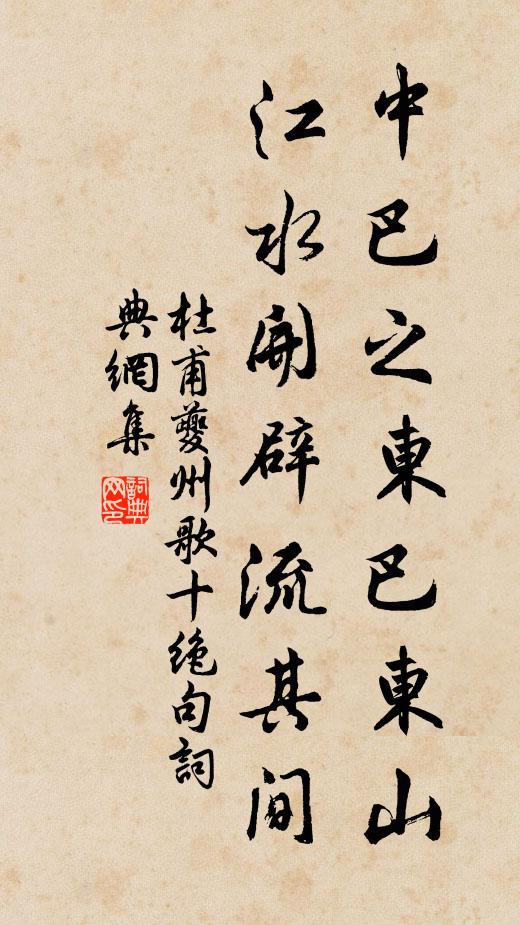 中巴之東巴東山
江水開辟流其間
杜甫夔州歌十絶句詞
典網集
詞典
网印